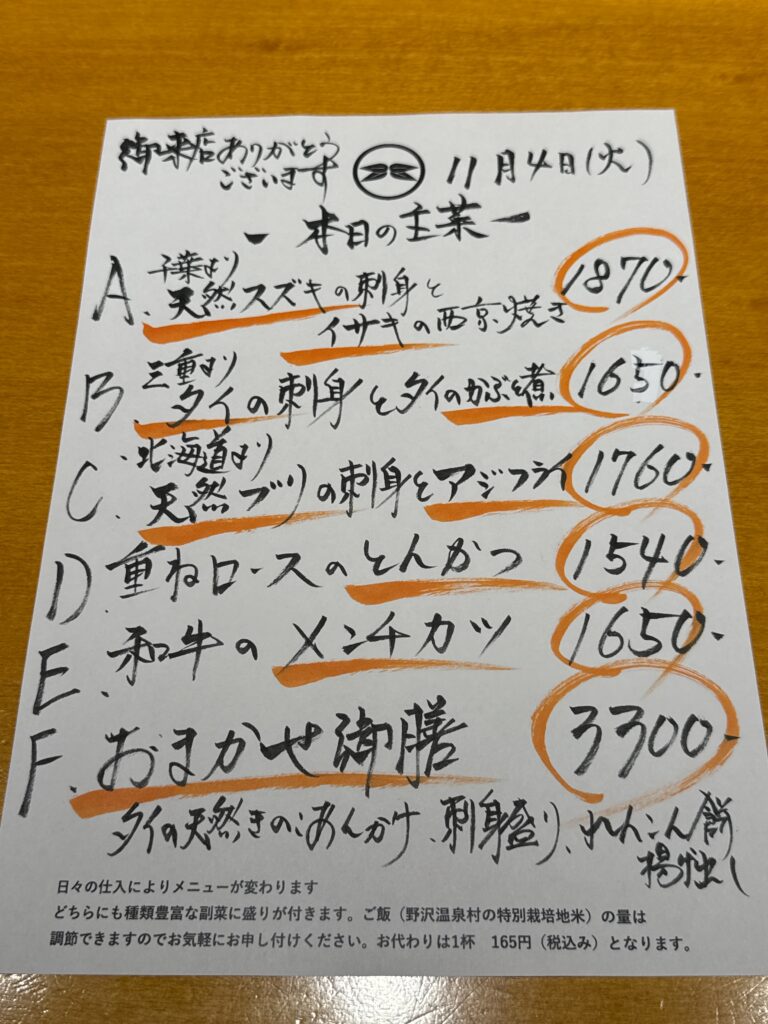 御来店ありがとう
ございます
11月4日(火)
ー本日の主菜ー
A. 千葉より
天然スズキの刺身と
イサキの西京焼き
1870-
B. 三重より
タイの刺身とタイのかぶと煮
1650-
C. 北海道より
天然ブリの刺身とアジフライ
1760-
D. 重ねロースのとんかつ
1540-
E. 和牛のメンチカツ
1650-
F. おまかせ御膳
3300-
タイの天然きのこあんかけ、刺身盛り、れんこん餅
揚げ出し
日々の仕入によりメニューが変わります
どちらにも種類豊富な副菜に盛りが付きます。ご飯（野沢温泉村の特別栽培地米）の量は
調節できますのでお気軽にお申し付けください。お代わりは1杯　165円（税込み）となります。